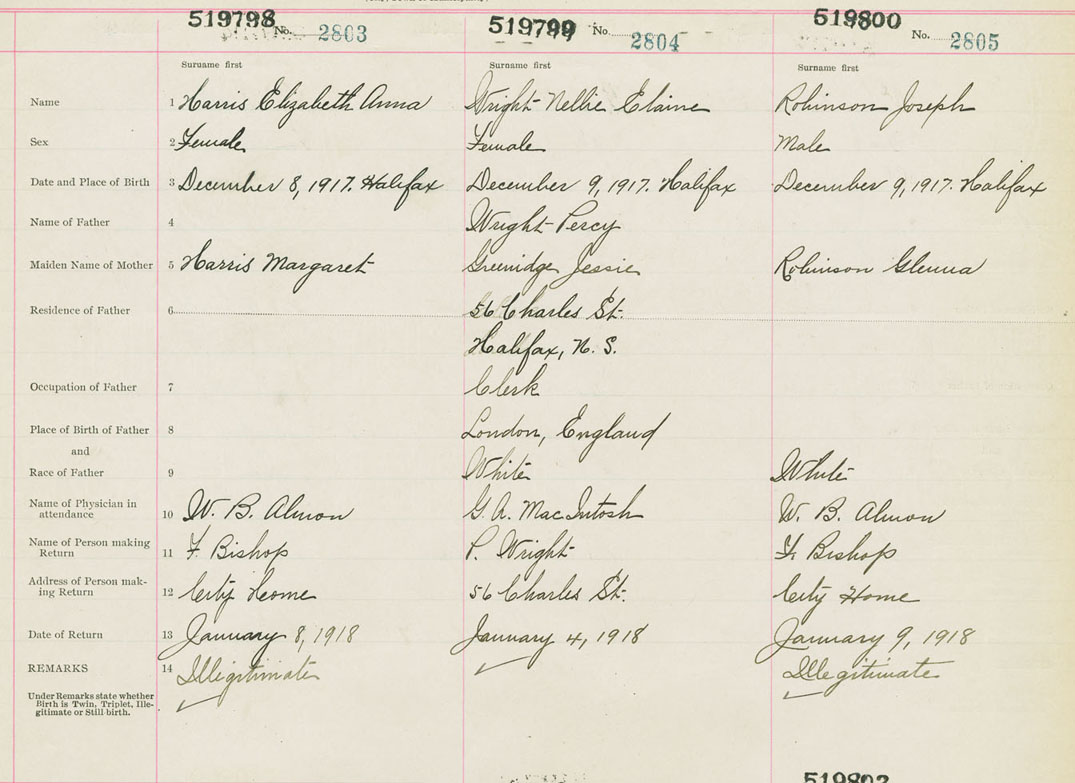 519798 No. 2803 519799 No. 2804 519800 No. 2805
Surname first Surname first Surname first
Name 1 Harris Elizabeth Anna Wright Nellie Elaine Robinson Joseph
Sex 2 Female Female Male
Date and Place of Birth 3 December 8, 1917. Halifax December 9, 1917. Halifax December 9, 1917. Halifax
Name of Father 4 Wright Percy
Maiden Name of Mother 5 Harris Margaret Greenidge Jessie Robinson Glenna
Residence of Father 6 56 Charles St.
Halifax, N. S.
Occupation of Father 7 Clerk
Place of Birth of Father 8 London, England
and
Race of Father 9 White White
Name of Physician in
attendance 10 W. B. Almon G. A. MacIntosh W. B. Almon
Name of Person making
Return 11 F. Bishop P. Wright F. Bishop
Address of Person mak-
ing Return 12 City Home 56 Charles St. City Home
Date of Return 13 January 8, 1918 January 4, 1918 January 9, 1918
REMARKS 14 Illegitimate Illegitimate
Under Remarks state whether
Birth is Twin, Triplet, Ille-
gitimate or Still-birth.